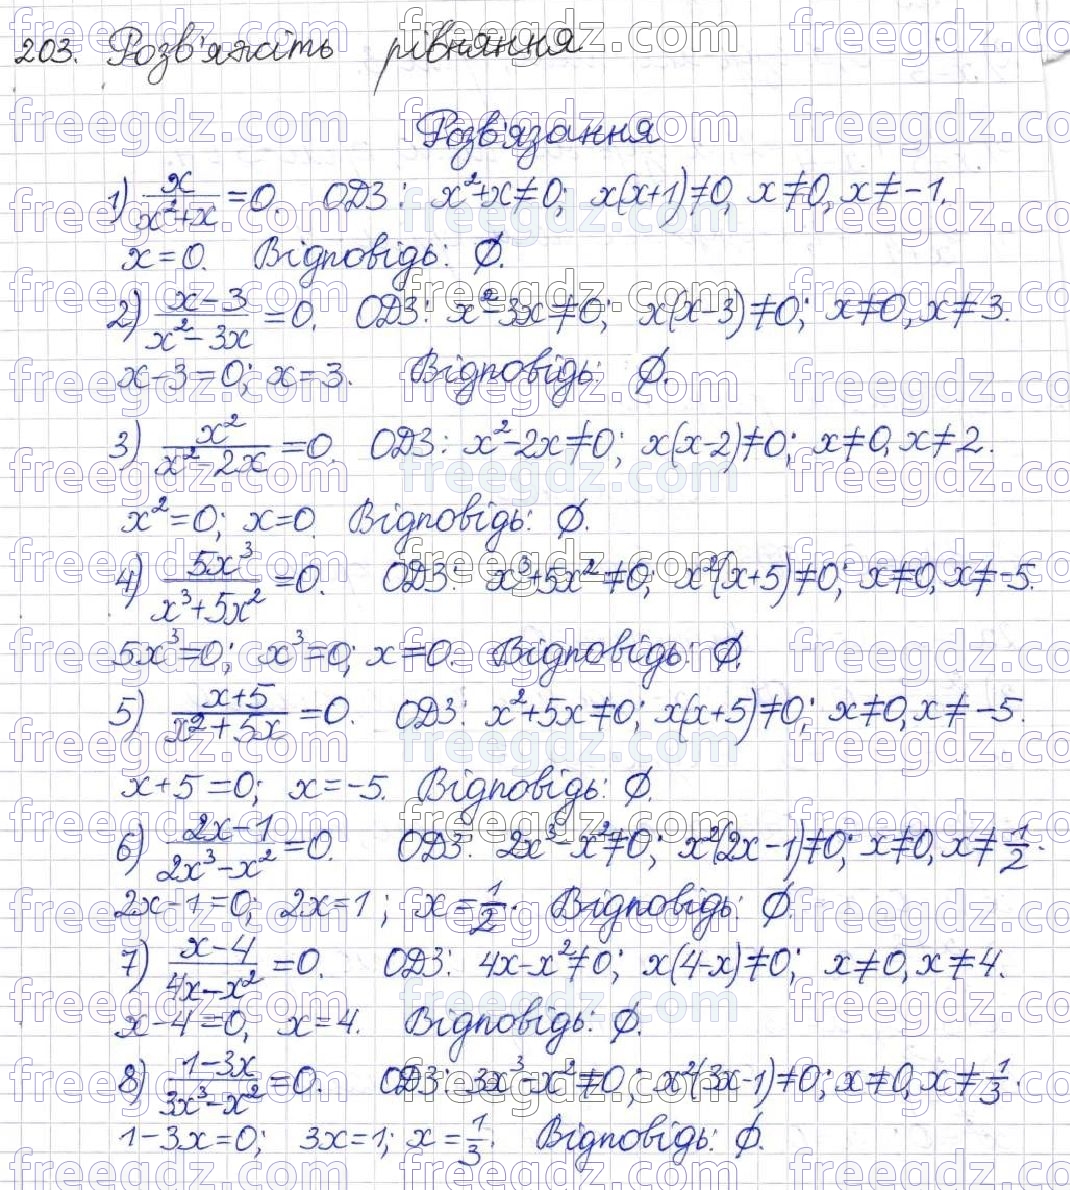 203. Розв'яжіть рівняння
Розв'язання
1) x/(x²+x) = 0. ОДЗ: x²+x≠0; x(x+1)≠0, x≠0, x≠-1.
x=0. Відповідь: Ø.
2) (x-3)/(x²-3x) = 0. ОДЗ: x²-3x≠0; x(x-3)≠0; x≠0, x≠3.
x-3=0; x=3. Відповідь: Ø.
3) x²/(x²-2x) = 0. ОДЗ: x²-2x≠0; x(x-2)≠0; x≠0, x≠2.
x²=0; x=0. Відповідь: Ø.
4) 5x³/(x³+5x²) = 0. ОДЗ: x³+5x²≠0; x²(x+5)≠0; x≠0, x≠-5.
5x³=0; x³=0; x=0. Відповідь: Ø.
5) (x+5)/(x²+5x) = 0. ОДЗ: x²+5x≠0; x(x+5)≠0; x≠0, x≠-5.
x+5=0; x=-5. Відповідь: Ø.
6) (2x-1)/(2x³-x²) = 0. ОДЗ: 2x³-x²≠0; x²(2x-1)≠0; x≠0, x≠1/2.
2x-1=0; 2x=1; x=1/2. Відповідь: Ø.
7) (x-4)/(4x-x²) = 0. ОДЗ: 4x-x²≠0; x(4-x)≠0; x≠0, x≠4.
x-4=0, x=4. Відповідь: Ø.
8) (1-3x)/(3x³-x²) = 0. ОДЗ: 3x³-x²≠0; x²(3x-1)≠0; x≠0, x≠1/3.
1-3x=0; 3x=1; x=1/3. Відповідь: Ø.
freegdz.com